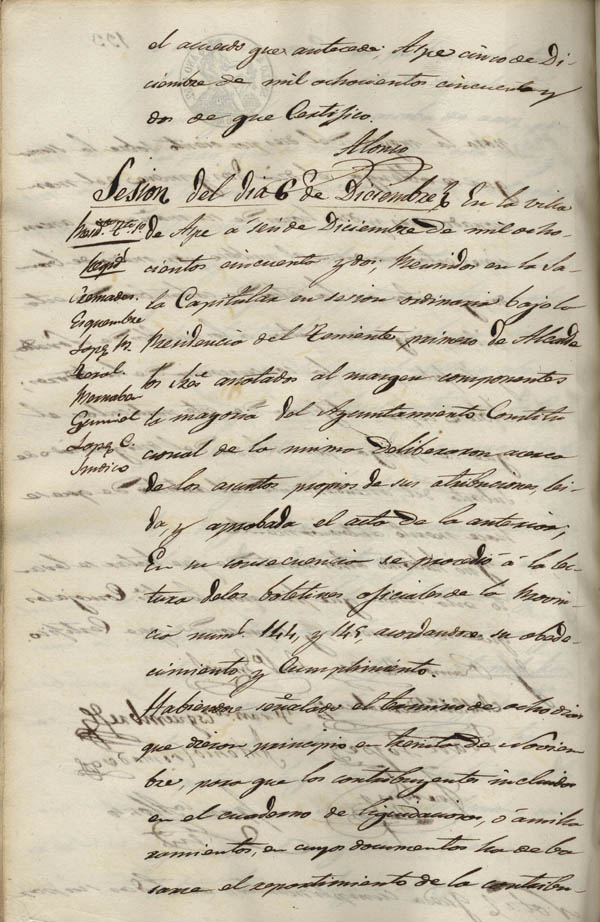 el acuerdo que antecede; Aspe cinco de Di-
ciembre de mil ochocientos cincuenta y
dos de que Certifico.
Alonso
Sesion del dia 6 de Diciembre
En la villa
de Aspe á seis de Diciembre de mil ocho-
cientos cincuenta y dos; Reunidos en la Sa-
la Capitular en sesion ordinaria bajo la
Presidencia del Teniente primero de Alcalde
los Sres. anotados al margen componentes
la mayoria del Ayuntamiento Constitu-
cional de la misma deliberaron acerca
de los asuntos propios de sus atribuciones, lei-
da, y aprobada el acta de la anterior;
En su consecuencia se procedió á la lec-
tura de los boletines oficiales de la Provin-
cia num.s 144, y 145, acordandose su obede-
cimiento y Cumplimiento.
Habiendose señalado el termino de ocho dias
que dieron principio en treinta de Noviem-
bre para que los contribuyentes incluidos
en el cuaderno de liquidaciones, ó amilla-
ramientos, en cuyos documentos ha de ba-
sarse el repartimiento de la contribu-
Presid.te Tte. 1º
Regid.s
Cremades.
Esquembre
Lopez M.
Mornaba
Lopez C.
Sindico